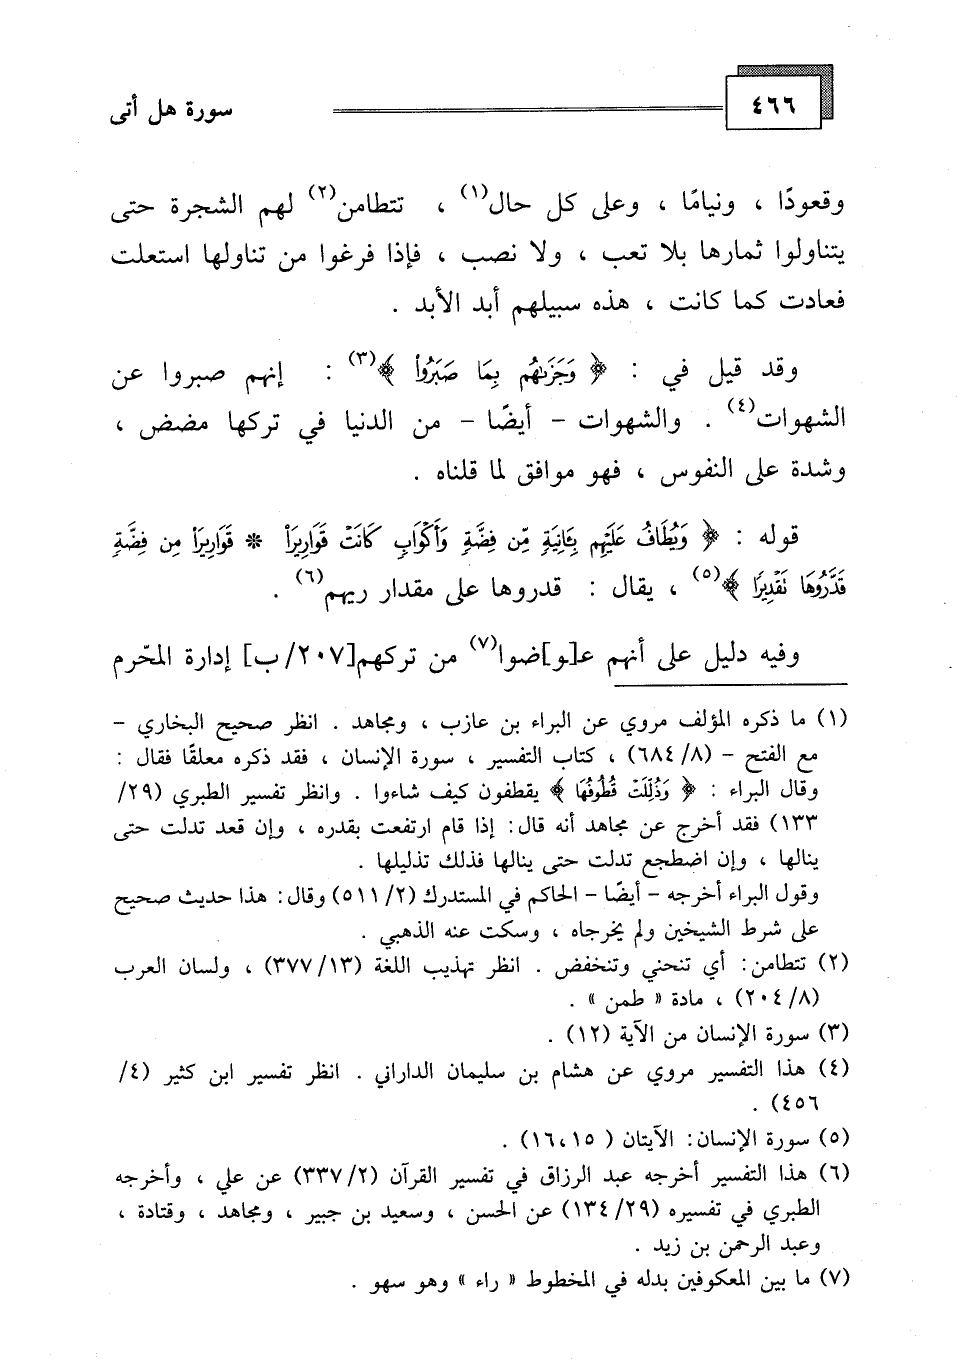 ٤٦٦
سورة هل أتى
وقعودًا ، ونيامًا ، وعلى كل حال(١) ، تتطامن(٢) لهم الشجرة حتى
يتناولوا ثمارها بلا تعب ، ولا نصب ، فإذا فرغوا من تناولها استعلت
فعادت كما كانت ، هذه سبيلهم أبد الأبد .
وقد قيل في : ﴿ وَجَزَىٰهُم بِمَا صَبَرُوا۟ ﴾(٣) : إنهم صبروا عن
الشهوات(٤) . والشهوات – أيضًا – من الدنيا في تركها مضض ،
وشدة على النفوس ، فهو موافق لما قلناه .
قوله : ﴿ وَيُطَافُ عَلَيْهِم بِـَٔانِيَةٍ مِّن فِضَّةٍ وَأَكْوَابٍ كَانَتْ قَوَارِيرَا۠ * قَوَارِيرَا۟ مِن فِضَّةٍ
قَدَّرُوهَا تَقْدِيرًا ﴾(٥) ، يقال : قدروها على مقدار ريهم(٦) .
وفيه دليل على أنهم عـ[ـو]ضوا(٧) من تركهم[٢٠٧/ب] إدارة المحّرم
(١) ما ذكره المؤلف مروي عن البراء بن عازب ، ومجاهد . انظر صحيح البخاري –
مع الفتح – (٦٨٤/٨) ، كتاب التفسير ، سورة الإنسان ، فقد ذكره معلقًا فقال :
وقال البراء : ﴿ وَذُلِّلَتْ قُطُوفُهَا ﴾ يقطفون كيف شاءوا . وانظر تفسير الطبري (٢٩/
١٣٣) فقد أخرج عن مجاهد أنه قال: إذا قام ارتفعت بقدره ، وإن قعد تدلت حتى
ينالها ، وإن اضطجع تدلت حتى ينالها فذلك تذليلها .
وقول البراء أخرجه – أيضًا – الحاكم في المستدرك (٥١١/٢) وقال: هذا حديث صحيح
على شرط الشيخين ولم يخرجاه ، وسكت عنه الذهبي .
(٢) تتطامن: أي تنحني وتنخفض . انظر تهذيب اللغة (٣٧٧/١٣) ، ولسان العرب
(٢٠٤/٨) ، مادة « طمن » .
(٣) سورة الإنسان من الآية (١٢) .
(٤) هذا التفسير مروي عن هشام بن سليمان الداراني . انظر تفسير ابن كثير (٤/
٤٥٦) .
(٥) سورة الإنسان: الآيتان ( ١٥،١٦) .
(٦) هذا التفسير أخرجه عبد الرزاق في تفسير القرآن (٣٣٧/٢) عن علي ، وأخرجه
الطبري في تفسيره (١٣٤/٢٩) عن الحسن ، وسعيد بن جبير ، ومجاهد ، وقتادة ،
وعبد الرحمن بن زيد .
(٧) ما بين المعكوفين بدله في المخطوط « راء » وهو سهو .